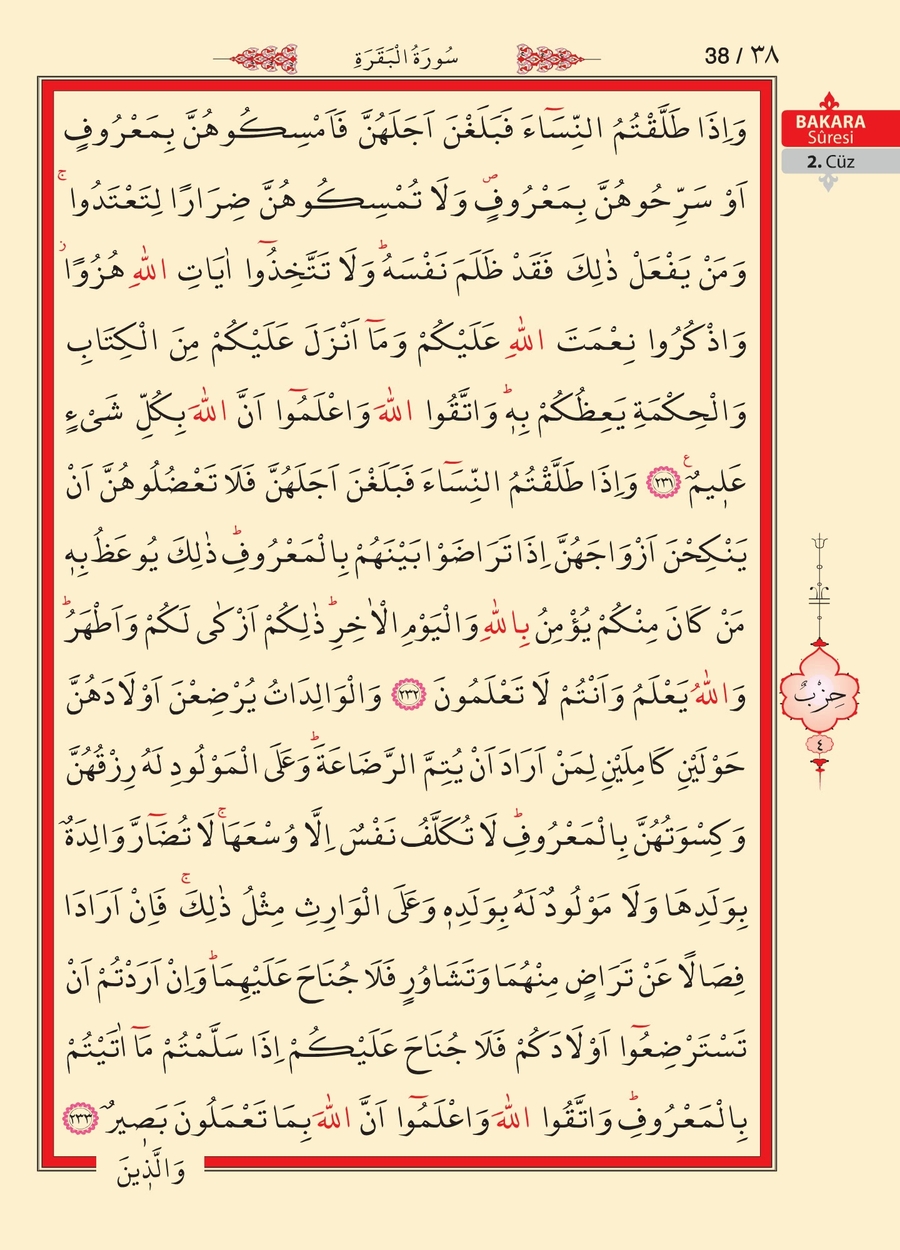 سُورَةُ الْبَقَرَةِ
38 / ٣٨
BAKARA
Sûresi
2. Cüz
وَاِذَا طَلَّقْتُمُ النِّسَٓاءَ فَبَلَغْنَ اَجَلَهُنَّ فَاَمْسِكُوهُنَّ بِمَعْرُوفٍ
اَوْ سَرِّحُوهُنَّ بِمَعْرُوفٍۖ وَلَا تُمْسِكُوهُنَّ ضِرَارًا لِتَعْتَدُواۚ
وَمَنْ يَفْعَلْ ذٰلِكَ فَقَدْ ظَلَمَ نَفْسَهُۜ وَلَا تَتَّخِذُٓوا اٰيَاتِ اللّٰهِ هُزُوًاۘ
وَاذْكُرُوا نِعْمَتَ اللّٰهِ عَلَيْكُمْ وَمَٓا اَنْزَلَ عَلَيْكُمْ مِنَ الْكِتَابِ
وَالْحِكْمَةِ يَعِظُكُمْ بِه۪ۜ وَاتَّقُوا اللّٰهَ وَاعْلَمُٓوا اَنَّ اللّٰهَ بِكُلِّ شَيْءٍ
عَل۪يمٌ۟ ﴿٢٣١﴾ وَاِذَا طَلَّقْتُمُ النِّسَٓاءَ فَبَلَغْنَ اَجَلَهُنَّ فَلَا تَعْضُلُوهُنَّ اَنْ
يَنْكِحْنَ اَزْوَاجَهُنَّ اِذَا تَرَاضَوْا بَيْنَهُمْ بِالْمَعْرُوفِۜ ذٰلِكَ يُوعَظُ بِه۪
مَنْ كَانَ مِنْكُمْ يُؤْمِنُ بِاللّٰهِ وَالْيَوْمِ الْاٰخِرِۜ ذٰلِكُمْ اَزْكٰى لَكُمْ وَاَطْهَرُۜ
وَاللّٰهُ يَعْلَمُ وَاَنْتُمْ لَا تَعْلَمُونَ ﴿٢٣٢﴾ وَالْوَالِدَاتُ يُرْضِعْنَ اَوْلَادَهُنَّ
حَوْلَيْنِ كَامِلَيْنِ لِمَنْ اَرَادَ اَنْ يُتِمَّ الرَّضَاعَةَۜ وَعَلَى الْمَوْلُودِ لَهُ رِزْقُهُنَّ
وَكِسْوَتُهُنَّ بِالْمَعْرُوفِۜ لَا تُكَلَّفُ نَفْسٌ اِلَّا وُسْعَهَاۚ لَا تُضَٓارَّ وَالِدَةٌ
بِوَلَدِهَا وَلَا مَوْلُودٌ لَهُ بِوَلَدِه۪ وَعَلَى الْوَارِثِ مِثْلُ ذٰلِكَۚ فَاِنْ اَرَادَا
فِصَالًا عَنْ تَرَاضٍ مِنْهُمَا وَتَشَاوُرٍ فَلَا جُنَاحَ عَلَيْهِمَاۜ وَاِنْ اَرَدْتُمْ اَنْ
تَسْتَرْضِعُٓوا اَوْلَادَكُمْ فَلَا جُنَاحَ عَلَيْكُمْ اِذَا سَلَّمْتُمْ مَٓا اٰتَيْتُمْ
بِالْمَعْرُوفِۜ وَاتَّقُوا اللّٰهَ وَاعْلَمُٓوا اَنَّ اللّٰهَ بِمَا تَعْمَلُونَ بَص۪يرٌ ﴿٢٣٣﴾
حِزْبٌ
٤
وَالَّذ۪ينَ